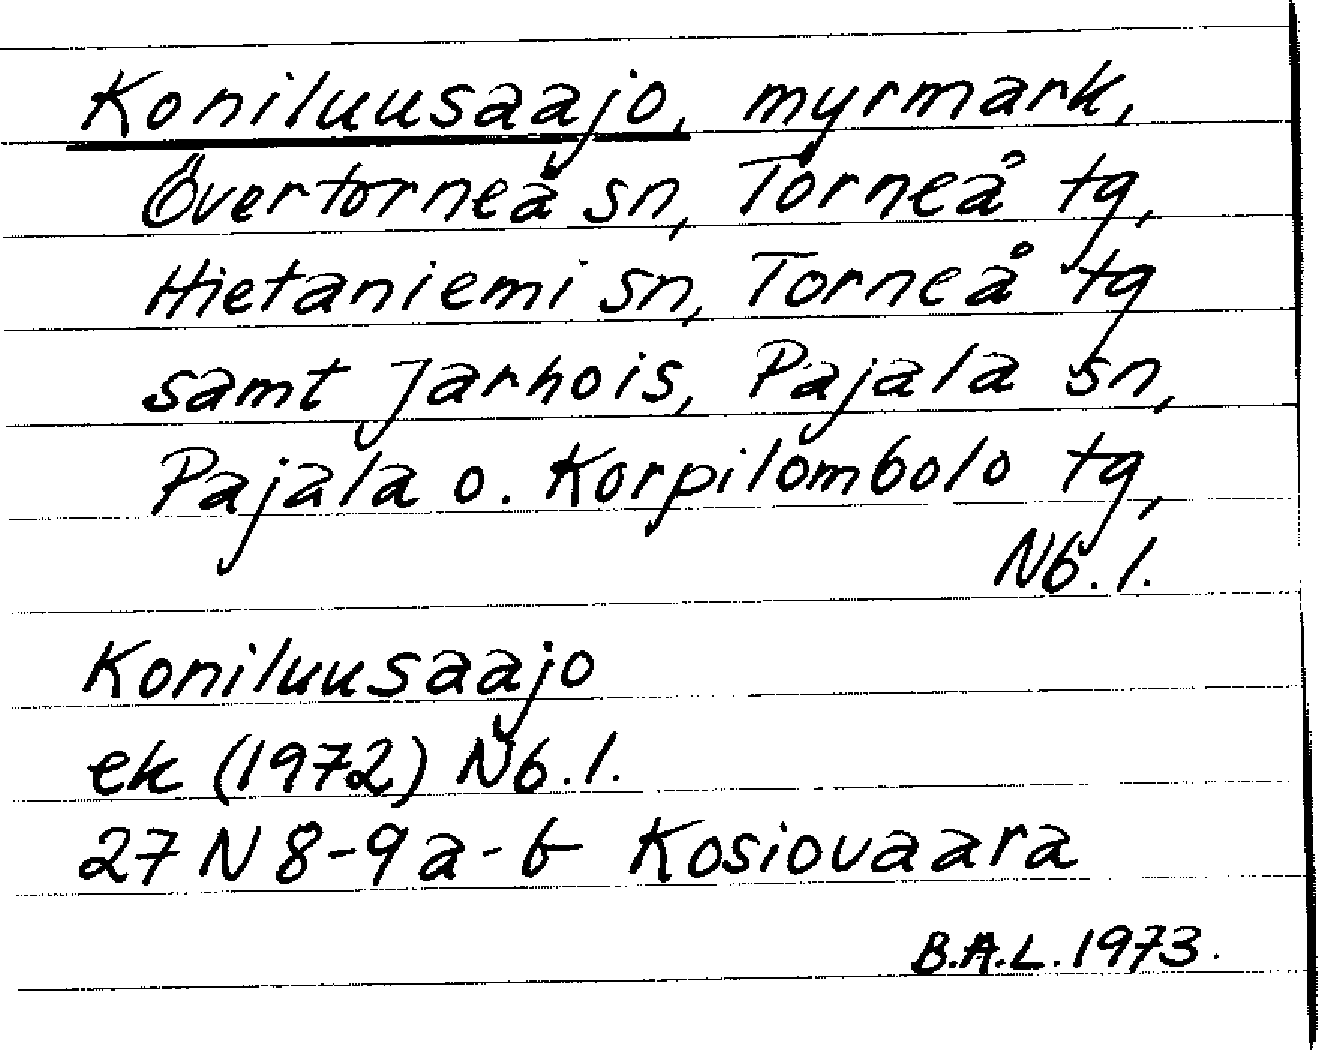 Koniluusaajo, myrmark,
Övertorneå sn, Torneå tg,
Hietaniemi sn, Torneå tg
samt Jarhois, Pajala sn,
Pajala o. Korpilombolo tg,
Nb. l.
Koniluusaajo
ek (1972) Nb. l.
27 N 8-9 a-b Kosiovaara
B.A.L. 1973.